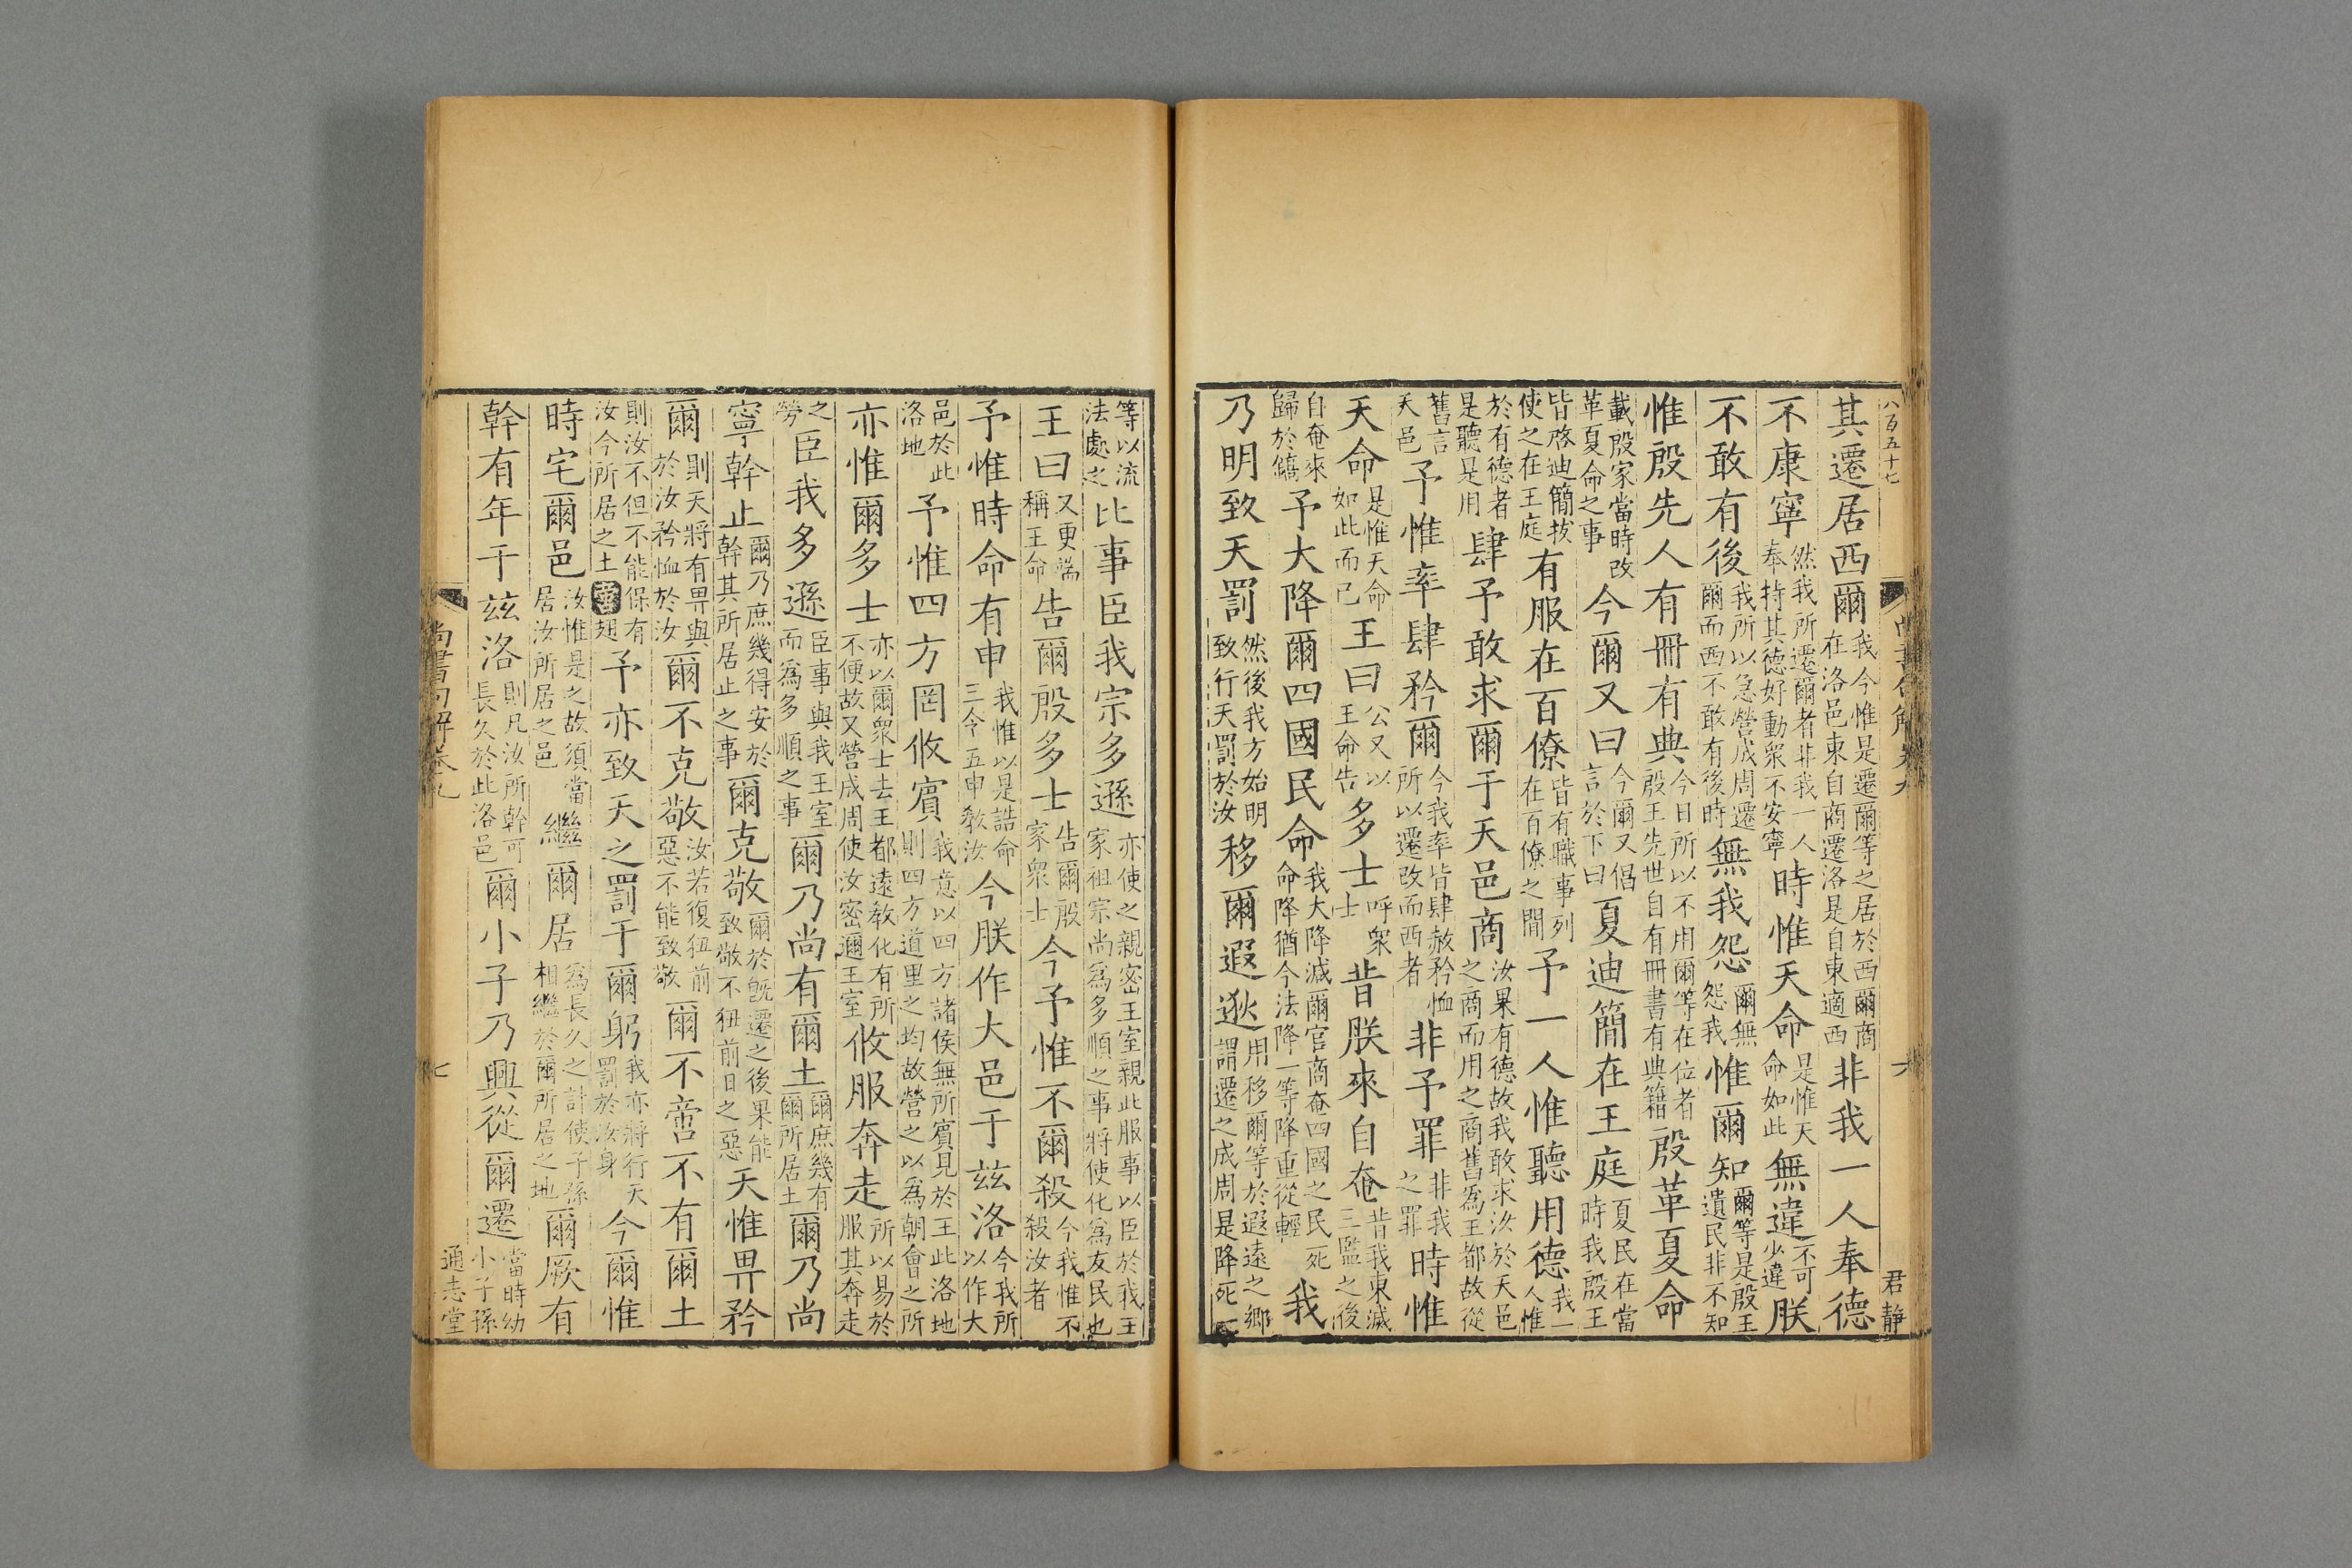 八百五十七 君静
其遷居西爾我今惟是遷爾等之居於西爾商在洛邑東自商遷洛是自東適西非我一人奉德
不康寧然我所遷爾者非我一人奉持其德好動衆不安寧時惟天命是惟天命如此無違不可少違朕
不敢有後我所以急營成周遷爾而西不敢有後時無我怨爾無怨我惟爾知爾等是殷王遺民非不知
惟殷先人有冊有典今日所以不用爾等在位者殷王先世自有冊書有典籍殷革夏命
載殷家當時改革夏命之事今爾又曰今爾又倡言於下曰夏迪簡在王庭夏民在當時我殷王
皆啓迪簡拔使之在王庭有服在百僚皆有職事列在百僚之間予一人惟聽用德我一人惟
於有德者是聽是用肆予敢求爾于天邑商汝果有德故我敢求汝於天邑之商而用之商舊爲王都故從
舊言天邑予惟率肆矜爾今我率皆肆赦矜恤所以遷改而西者非予罪非我之罪時惟
天命是惟天命如此而已王曰公又以王命告多士呼衆士昔朕來自奄昔我東滅三監之後
自奄來歸於鎬予大降爾四國民命我大降滅爾官商奄四國之民死命降猶今法降一等降重從輕我
乃明致天罰然後我方始明致行天罰於汝移爾遐逖用移爾等於遐遠之鄉謂遷之成周是降死
尚書句解卷九 六
等以流法處之比事臣我宗多遜亦使之親密王室親此服事以臣於我王家祖宗尚爲多順之事將使化爲友民也
王曰又更端稱王命告爾殷多士告爾殷家衆士今予惟不爾殺今我惟不殺汝者
予惟時命有申我惟以是誥命三令五申敎汝今朕作大邑于茲洛今我所以作大
邑於此洛地予惟四方罔攸賓我意以四方諸侯無所賓見於王此洛地則四方道里之均故營之以爲朝會之所
亦惟爾多士亦以爾衆士去王都遠敎化有所不便故又營成周使汝密邇王室攸服奔走所以易於服其奔走
之勞臣我多遜臣事與我王室而爲多順之事爾乃尚有爾土爾庶幾有爾所居土爾乃尚
寧幹止爾乃庶幾得安於幹其所居止之事爾克敬爾於旣遷之後果能致敬不狃前日之惡天惟畀矜
爾則天將有畀與於汝矜恤於汝爾不克敬汝若復狃前惡不能致敬爾不啻不有爾土
則汝不但不能保有汝今所居之土啻翅予亦致天之罰于爾躬我亦將行天罰於汝身今爾惟
時宅爾邑汝惟是之故須當居汝所居之邑繼爾居爲長久之計使子孫相繼於爾所居之地爾厥有
幹有年于兹洛則凡汝所幹可長久於此洛邑爾小子乃興從爾遷當時幼小子孫
尚書句解卷九 七 通志堂